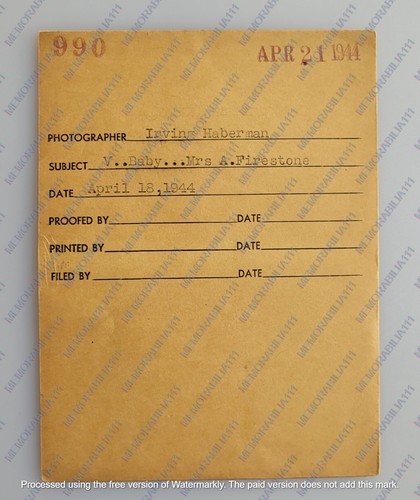 990 APR 21 1944
PHOTOGRAPHER Irving Haberman
SUBJECT V..Baby...Mrs A.Firestone
DATE April 18,1944
PROOFED BY DATE
PRINTED BY DATE
FILED BY DATE
MEMORABILIA111
Processed using the free version of Watermarkly. The paid version does not add this mark.